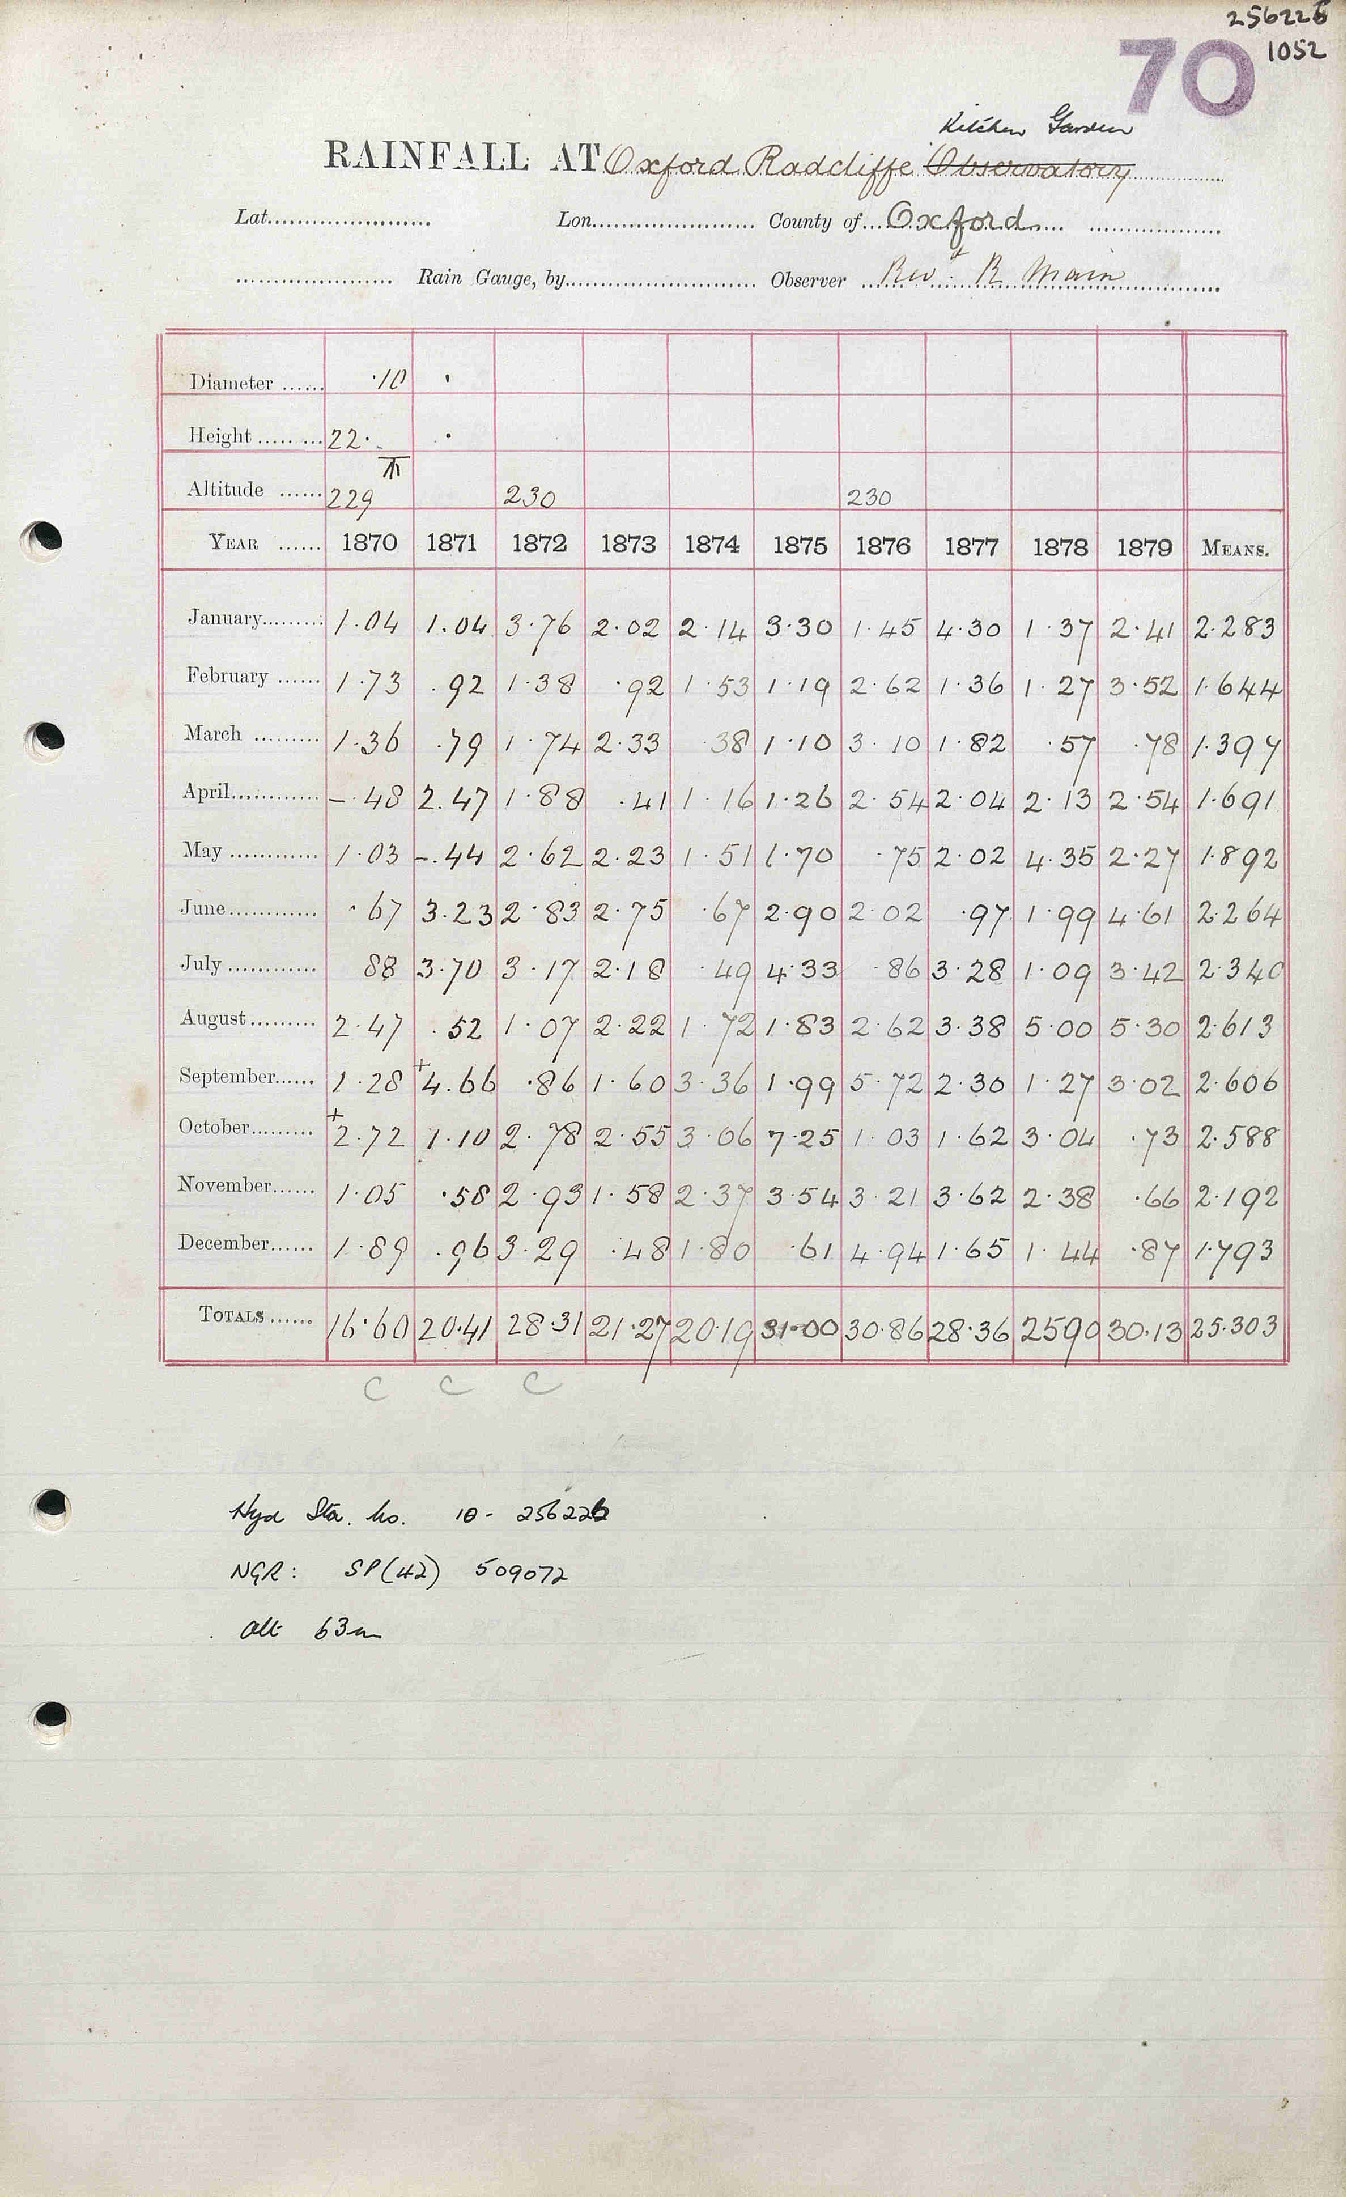 256226
1052
70
Kitchen Garden
RAINFALL AT Oxford Radcliffe Observatory
Lat. Lon. County of Oxford
Rain Gauge, by Observer Revd. R Main
Diameter ·10 ·
Height 22· ·
Altitude 229 230 230
YEAR 1870 1871 1872 1873 1874 1875 1876 1877 1878 1879 MEANS.
January 1·04 1.04 3·76 2·02 2·14 3·30 1·45 4·30 1·37 2·41 2·283
February 1·73 .92 1·38 ·92 1·53 1·19 2·62 1·36 1·27 3·52 1·644
March 1·36 ·79 1·74 2·33 38 1·10 3·10 1·82 ·57 ·78 1·397
April –·48 2.47 1·88 ·41 1·16 1·26 2·54 2·04 2·13 2·54 1·691
May 1·03 –.44 2·62 2·23 1·51 1·70 ·75 2·02 4·35 2·27 1·892
June ·67 3.23 2·83 2·75 ·67 2·90 2·02 ·97 1·99 4·61 2·264
July 88 3·70 3·17 2·18 ·49 4·33 ·86 3·28 1·09 3·42 2·340
August 2·47 .52 1·07 2·22 1·72 1·83 2·62 3·38 5·00 5·30 2·613
September 1·28 +4.66 ·86 1·60 3·36 1·99 5·72 2·30 1·27 3·02 2·606
October +2·72 1·10 2·78 2·55 3·06 7·25 1·03 1·62 3·04 ·73 2·588
November 1·05 ·58 2·93 1·58 2·37 3·54 3·21 3·62 2·38 ·66 2·192
December 1·89 .96 3·29 ·48 1·80 ·61 4·94 1·65 1·44 ·87 1·793
TOTALS 16·60 20·41 28·31 21·27 20·19 31·00 30·86 28·36 2590 30·13 25·303
C C C
Hyd Sta. No. 10 - 256226
NGR: SP(42) 509072
Alt 63m